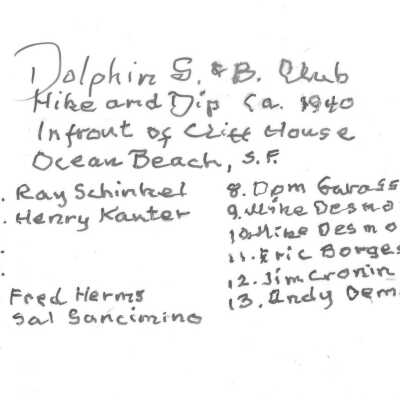 Dolphin S. & B. Club
Hike and Dip Ca. 1940
Infront of Cliff House
Ocean Beach, S.F.
. Ray Schinkel
. Henry Kanter
.
.
Fred Herms
Sal Sancimino
8. Dom Garass
9. Mike Desmo
10. Mike Desmo
11. Eric Borges
12. Jim Cronin
13. Andy Dem